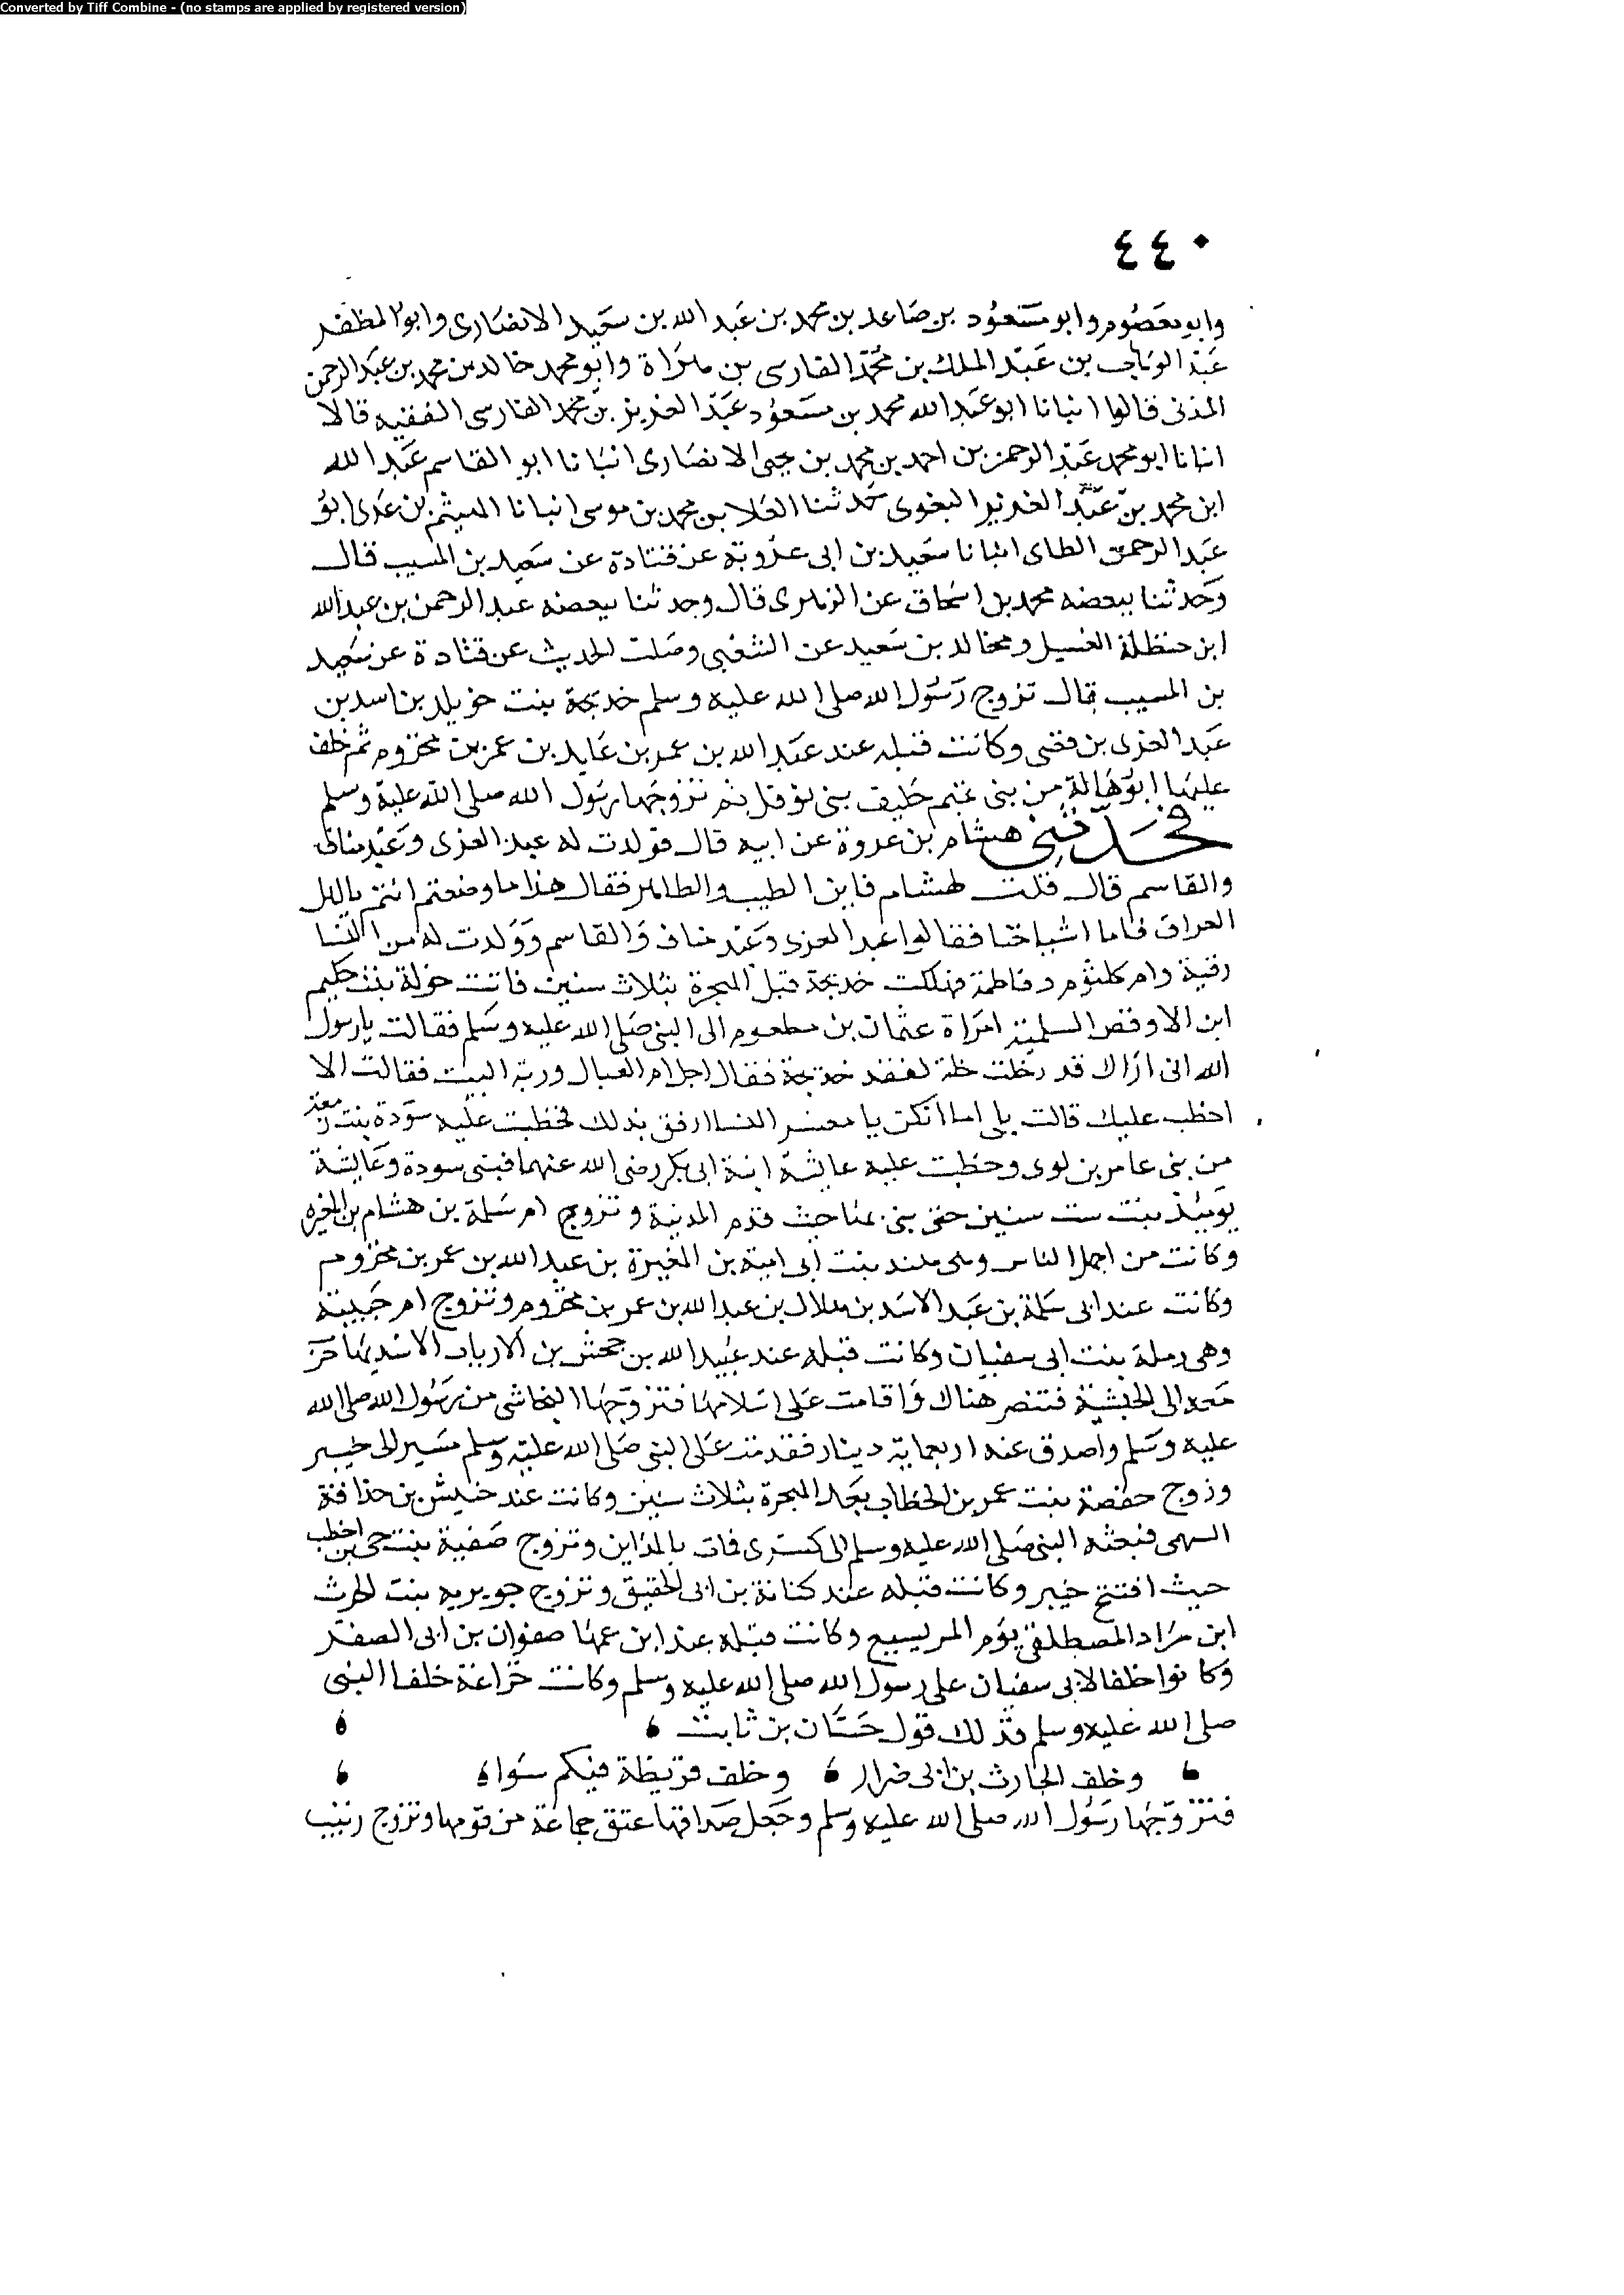 Converted by Tiff Combine - (no stamps are applied by registered version)
٤٤٠
وابو معصوم وابو مسعود بن صاعد بن محمد بن عبد الله بن سعيد الانصارى وابو المظفر
عبد الوهاب بن عبد الملك بن محمد الفارسى بن مراة وابو محمد خالد بن محمد بن عبد الرحمن
المدنى قالوا انبانا ابو عبد الله محمد بن مسعود عبد العزيز بن محمد الفارسى الفقيه قالا
انبانا ابو محمد عبد الرحمن بن احمد بن محمد بن يحيى الانصارى انبانا ابو القاسم عبد الله
ابن محمد بن عبد العزيز البغوى حدثنا العلا بن محمد بن موسى انبانا الهيثم بن عدى ابو
عبد الرحمن الطاى انبانا سعيد بن ابى عروبة عن قتادة عن سعيد بن المسيب قال
وحدثنا ببعضه محمد بن اسحاق عن الزهرى قال وحدثنا ببعضه عبد الرحمن بن عبد الله
ابن حنظلة الغسيل ومخالد بن سعيد عن الشعبى وصلت الحديث عن قتادة عن سعيد
بن المسيب قال تزوج رسول الله صلى الله عليه وسلم خديجة بنت خويلد بن اسد بن
عبد العزى بن قصى وكانت قبله عند عبد الله بن عمر بن عايد بن عمر بن مخزوم ثم خلف
عليها ابو هالة من بنى غنم حليف بنى نوفل ثم تزوجها رسول الله صلى الله عليه وسلم
فحدثنى هشام بن عروة عن ابيه قال فولدت له عبد العزى وعبد مناف
والقاسم قال قلت لهشام فاين الطيب والطاهر فقال هذا ما وضعتم انتم ياهل
العراق فاما اشياخنا فقالوا عبد العزى وعبد مناف والقاسم وولدت له من النسا
رقية وام كلثوم وفاطمة فهلكت خديجة قبل الهجرة بثلاث سنين فاتت خولة بنت حكيم
ابن الاوقص السلمية امراة عثمان بن مطعوم الى النبى صلى الله عليه وسلم فقالت يا رسول
الله انى اراك قد دخلت خلة لفقد خديجة فقال اجل ام العيال وربة البيت فقالت الا
اخطب عليك قالت بلى اما انكن يا معشر النسا ارفق بذلك فخطبت عليه سودة بنت زمعة
من بنى عامر بن لوى وخطبت عليه عايشة ابنة ابى بكر رضى الله عنهما فبنى بسودة وعايشة
يوميذ بنت ست سنين حتى بنى بها حيث قدم المدينة وتزوج ام سلمة بن هشام بن المغيرة
وكانت من اجمل الناس وهى هند بنت ابى امية بن المغيرة بن عبد الله بن عمر بن مخزوم
وكانت عند ابى سلمة بن عبد الاسد بن هلال بن عبد الله بن عمر بن مخزوم وتزوج ام حبيبة
وهى رملة بنت ابى سفيان وكانت قبله عند عبيد الله بن جحش بن
معه الى الحبشة فتنصر هناك واقامت على اسلامها فتزوجها النجاشى من رسول الله صلى الله
عليه وسلم واصدق عنه اربعماية دينار فقدمت على النبى صلى الله عليه وسلم مسير الى خيبر
وزوج حفصة بنت عمر بن الخطاب بعد الهجرة بثلاث سنين وكانت عند خنيش بن حذافة
السهمى فبعثه النبى صلى الله عليه وسلم الى كسرى فات بالمداين وتزوج صفية بنت حيى بن اخطب
حيث افتتح خيبر وكانت قبله عند كنانة بن ابى الحقيق وتزوج جويريه بنت الحرث
ابن ضراد المصطلقى يوم المريسيع وكانت قبله عند ابن عمها صفوان بن ابى الصفر
وكانوا خلفا لابى سفيان على رسول الله صلى الله عليه وسلم وكانت خزاعة خلفا النبى
صلى الله عليه وسلم فذلك قول حسان بن ثابت
وخلف الحارث بن ابى ضرار وخلف قريظة فيكم سواه
فتزوجها رسول الله صلى الله عليه وسلم وجعل صداقها عتق جماعة من قومها وتزوج زينب